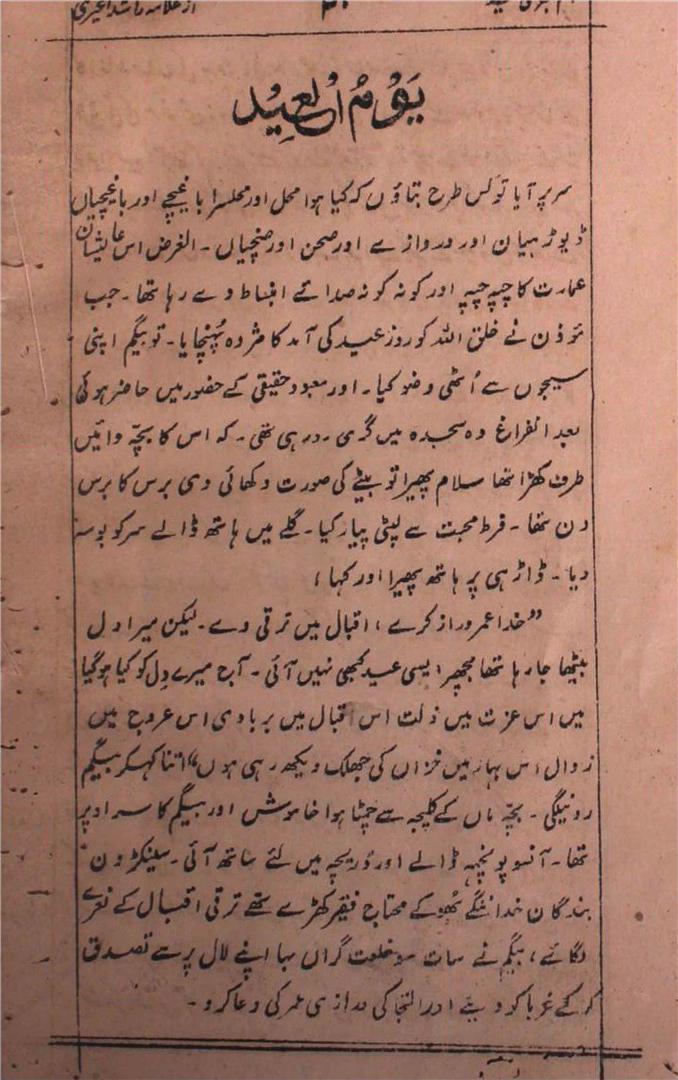 از علامہ راشد الخیری
۳۰
یَوْمُ الْعِیْد
سر پر آیا تو کس طرح بتاؤں کہ کیا ہوا محل اور محلسرا باغیچے اور باغیچیاں
ڈیوڑہیان اور دروازے اور صحن اور صنچیاں ۔ الغرض اس عالیشان
عمارت کا چپہ چپہ اور کونہ کونہ صدائے انبساط دے رہا تھا ۔ جب
مؤذن نے خلق اللہ کو روز عید کی آمد کا مژدہ پہنچایا ۔ تو بیگم اپنی
سیجوں سے اُٹھی وضو کیا ۔ اور معبود حقیقی کے حضور میں حاضر ہوئی
بعد انفراغ وہ سجدہ میں گری رو رہی تھی ۔ کہ اس کا بچّہ دائیں
طرف کھڑا تھا سلام پھیرا تو بیٹے کی صورت دکھائی دی برس کا برس
دن تھا ۔ فرط محبت سے لپٹی پیار کیا ۔ گلے میں ہاتھ ڈالے سر کو بوسہ
دیا ۔ ڈاڑہی پر ہاتھ پھیرا اور کہا ؛
”خدا عمر دراز کرے ، اقبال میں ترقی دے ۔ لیکن میرا دل
بیٹھا جا رہا تھا مجھپر ایسی عید کبھی نہیں آئی ۔ آج میرے دِل کو کیا ہو گیا
میں اس عزت میں ذلت اس اقبال میں بربادی اس عروج میں
زوال اس بہار میں خزاں کی جھلک دیکھ رہی ہوں“ اتنا کہکر بیگم
رونیلگی ۔ بچّہ ماں کے کلیجہ سے چمٹا ہوا خاموش اور بیگم کا سر اوپر
تھا ۔ آنسو پونچہہ ڈالے اور دریچہ میں لئے ساتھ آئی ۔ سینکڑون
بندگان خدا ننگے بُھوکے محتاج فقیر کھڑے تھے ترقی اقبال کے نعرے
لگائے ، بیگم نے سات سو خلعت گراں بہا اپنے لال پر سے تصدق
کر کے غربا کو دیئے اور التجا کی درازی عمر کی دعا کرو ۔